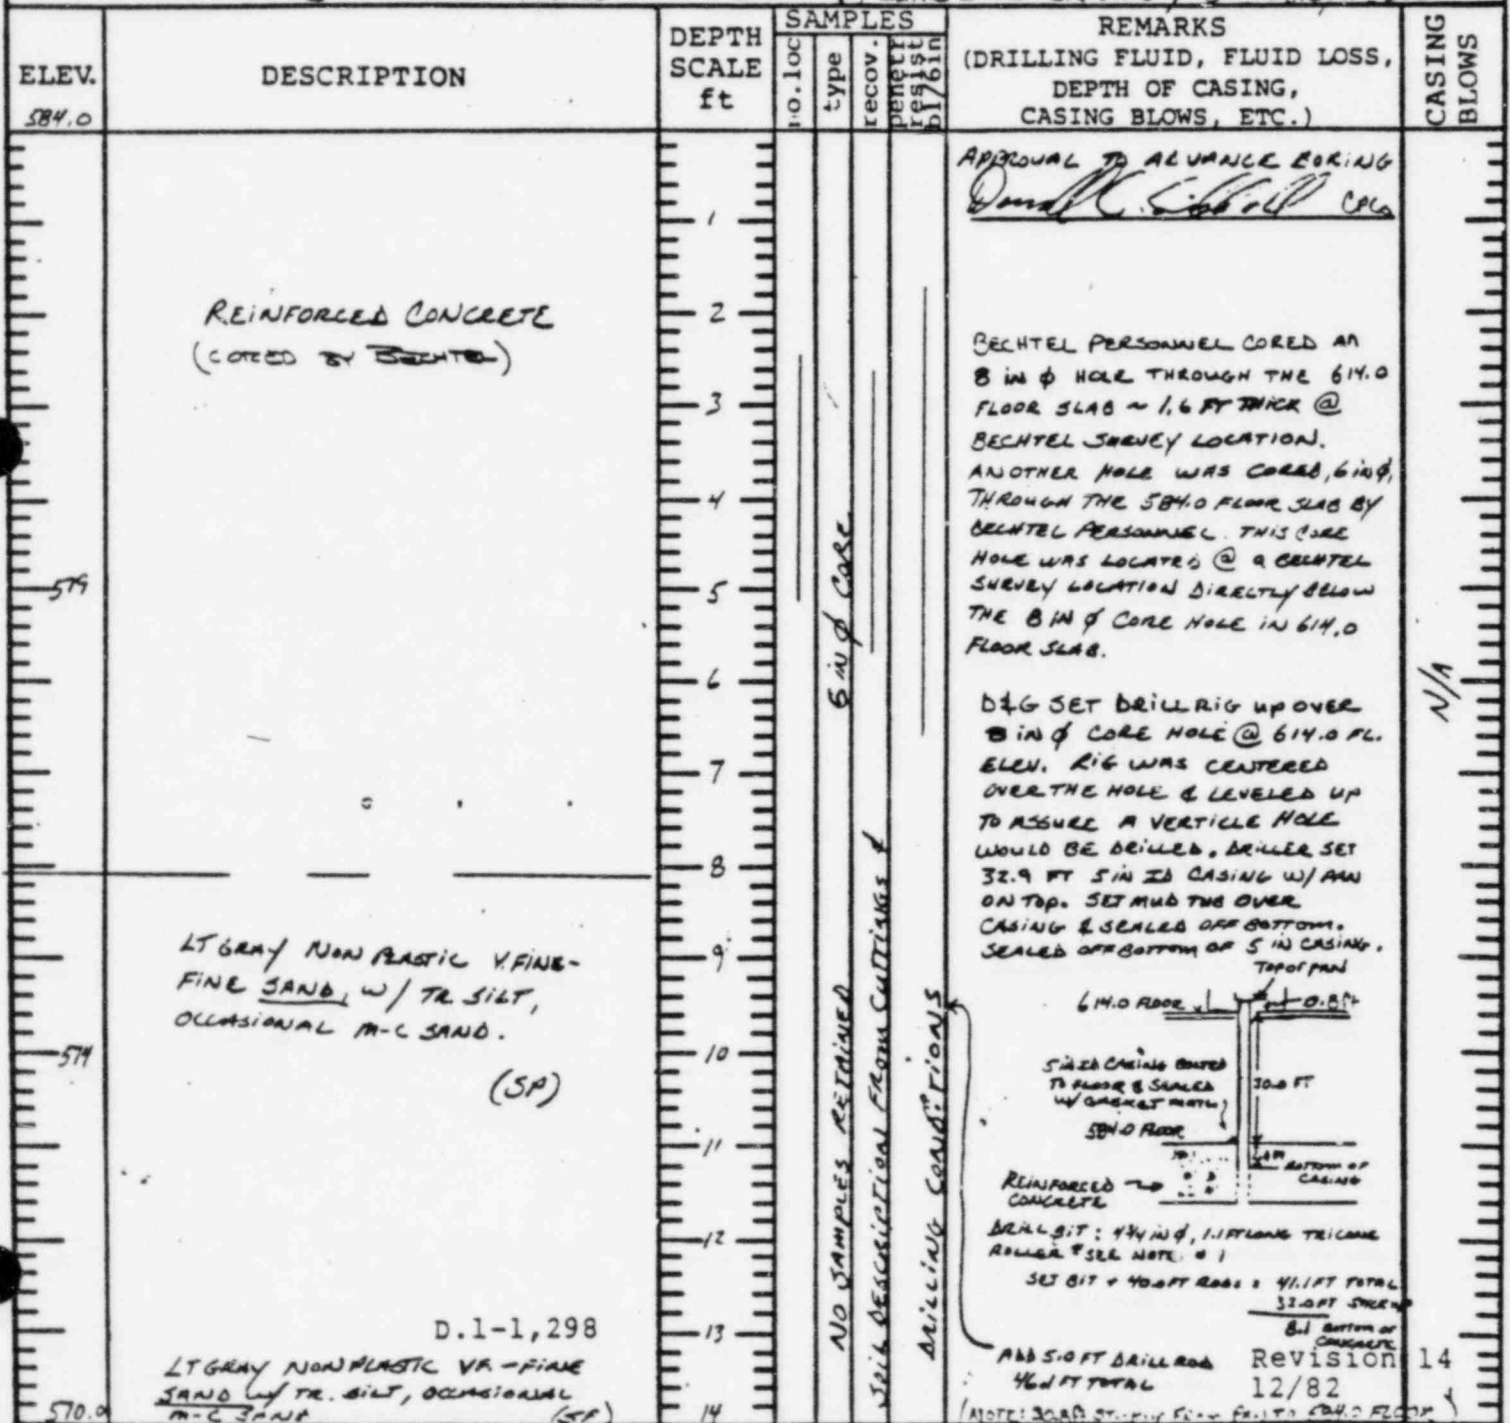 ELEV.
584.0
DESCRIPTION
DEPTH
SCALE
ft
SAMPLES
no.loc
type
recov.
penetr
resist
bl/6in
REMARKS
(DRILLING FLUID, FLUID LOSS,
DEPTH OF CASING,
CASING BLOWS, ETC.)
CASING
BLOWS
APPROVAL TO ADVANCE BORING
CPCo
REINFORCED CONCRETE
(CORED BY BECHTEL)
1
2
3
4
5
6
7
8
9
10
11
12
13
14
579
574
570.0
LT GRAY NON PLASTIC V.FINE-
FINE SAND, W/ TR SILT,
OCCASIONAL M-C SAND.
(SP)
D.1-1,298
LT GRAY NONPLASTIC VF-FINE
SAND W/ TR. SILT, OCCASIONAL
M-C SAND (SP)
6 in φ CORE
NO SAMPLES RETAINED
SOIL DESCRIPTION FROM CUTTINGS &
DRILLING CONDITIONS
BECHTEL PERSONNEL CORED AN
8 in φ HOLE THROUGH THE 614.0
FLOOR SLAB ~ 1.6 FT THICK @
BECHTEL SURVEY LOCATION.
ANOTHER HOLE WAS CORED, 6 in φ,
THROUGH THE 584.0 FLOOR SLAB BY
BECHTEL PERSONNEL. THIS CORE
HOLE WAS LOCATED @ a BECHTEL
SURVEY LOCATION DIRECTLY BELOW
THE 8 IN φ CORE HOLE IN 614.0
FLOOR SLAB.
D&G SET DRILL RIG UP OVER
8 IN φ CORE HOLE @ 614.0 FL.
ELEV. RIG WAS CENTERED
OVER THE HOLE & LEVELED UP
TO ASSURE A VERTICLE HOLE
WOULD BE DRILLED. DRILLER SET
32.9 FT 5 IN ID CASING W/ PAN
ON TOP. SET MUD TUB OVER
CASING & SEALED OFF BOTTOM.
SEALED OFF BOTTOM OF 5 IN CASING.
TOP OF PAN
614.0 FLOOR
0.8 FT
5 in ID CASING BOLTED
TO FLOOR & SEALED
W/ GASKET MATL
30.0 FT
584.0 FLOOR
BOTTOM OF
CASING
REINFORCED
CONCRETE
DRILL BIT: 4 3/4 in φ, 1.1 FT LONG TRICONE
ROLLER * SEE NOTE # 1
SET BIT + 40.0 FT RODS = 41.1 FT TOTAL
33.0 FT
8.1 BOTTOM OF
CONCRETE
ADD 5.0 FT DRILL ROD
46.1 FT TOTAL
Revision 14
12/82
N/A